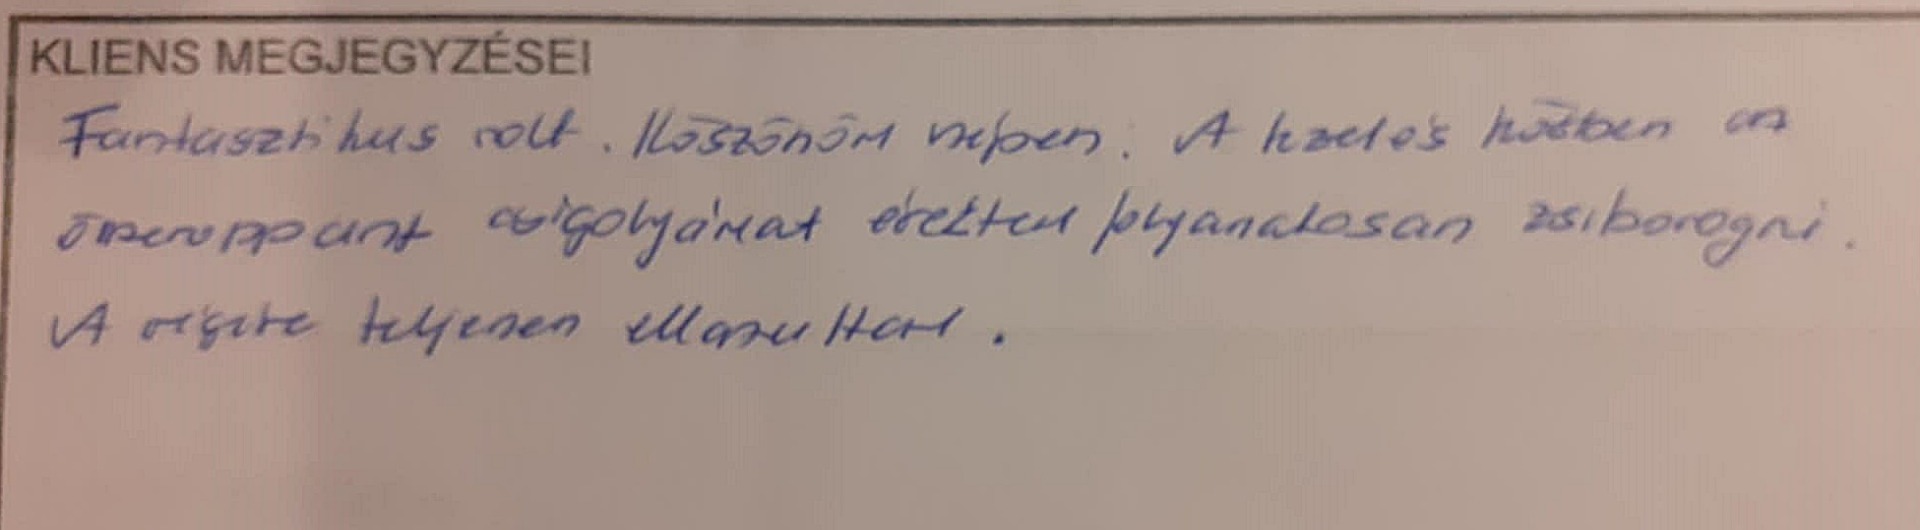 KLIENS MEGJEGYZÉSEI
Fantasztikus volt. Köszönöm szépen. A kezelés közben az
összeroppant csigolyámat éreztem folyamatosan zsiborogni.
A végére teljesen ellazultam.